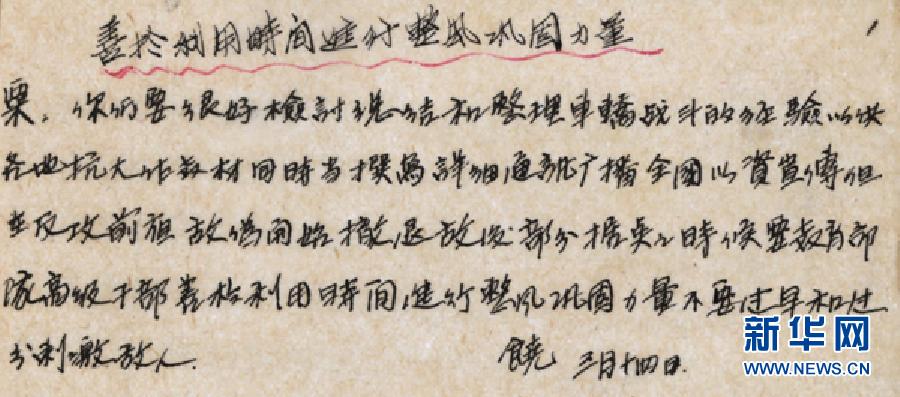 善於利用時間進行整风巩固力量
粟，你们要很好檢討总结和整理車轎战斗的经驗以供
各地抗大作教材同時当撰为詳细通訊广播全國以資宣傳但
在反攻前夜敌偽開始撤退敌后部分据点之時候整教育部
隊高级干部善於利用時間進行整风巩固力量不要过早和过
分刺激敌人.
饒 三月十四日.
新华网
WWW.NEWS.CN